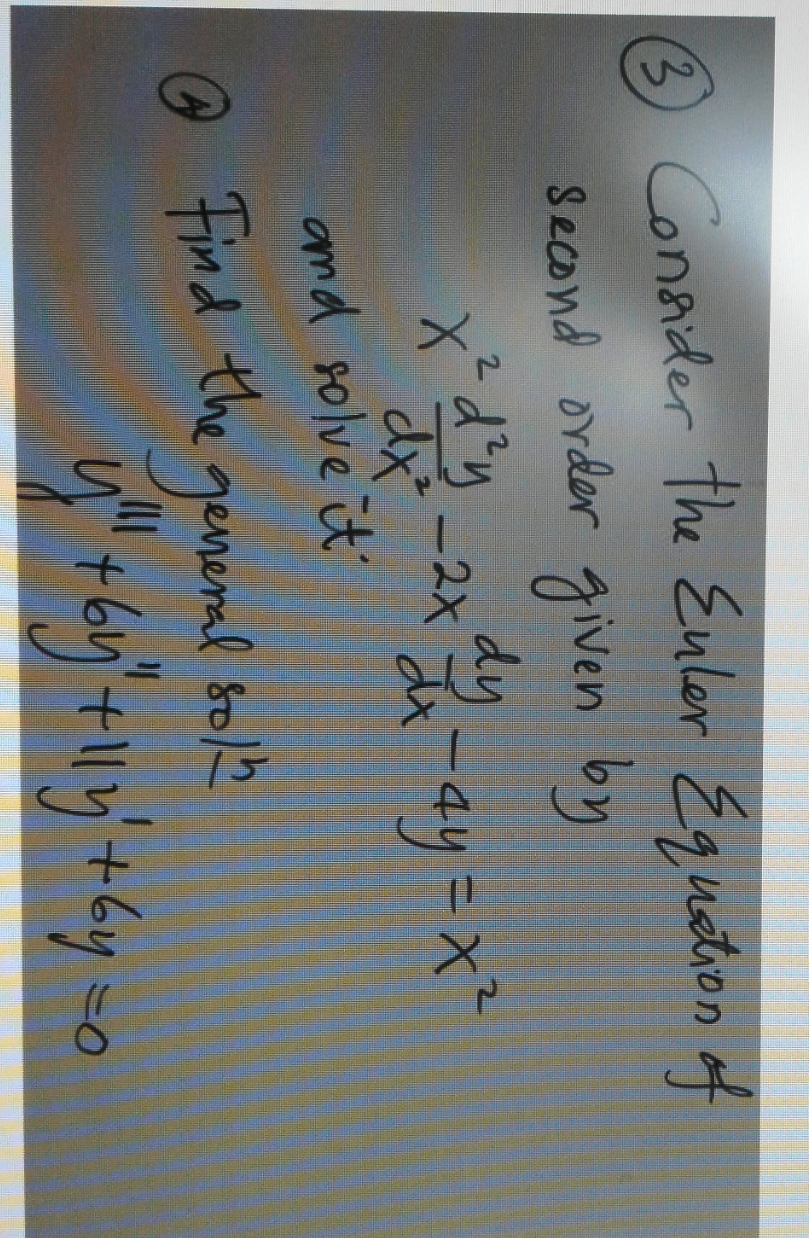 ③ Consider the Euler Equation of
second order given by
x² d²y/dx² - 2x dy/dx - 4y = x²
and solve it.
④ Find the general solⁿ
y''' + 6y'' + 11y' + 6y = 0